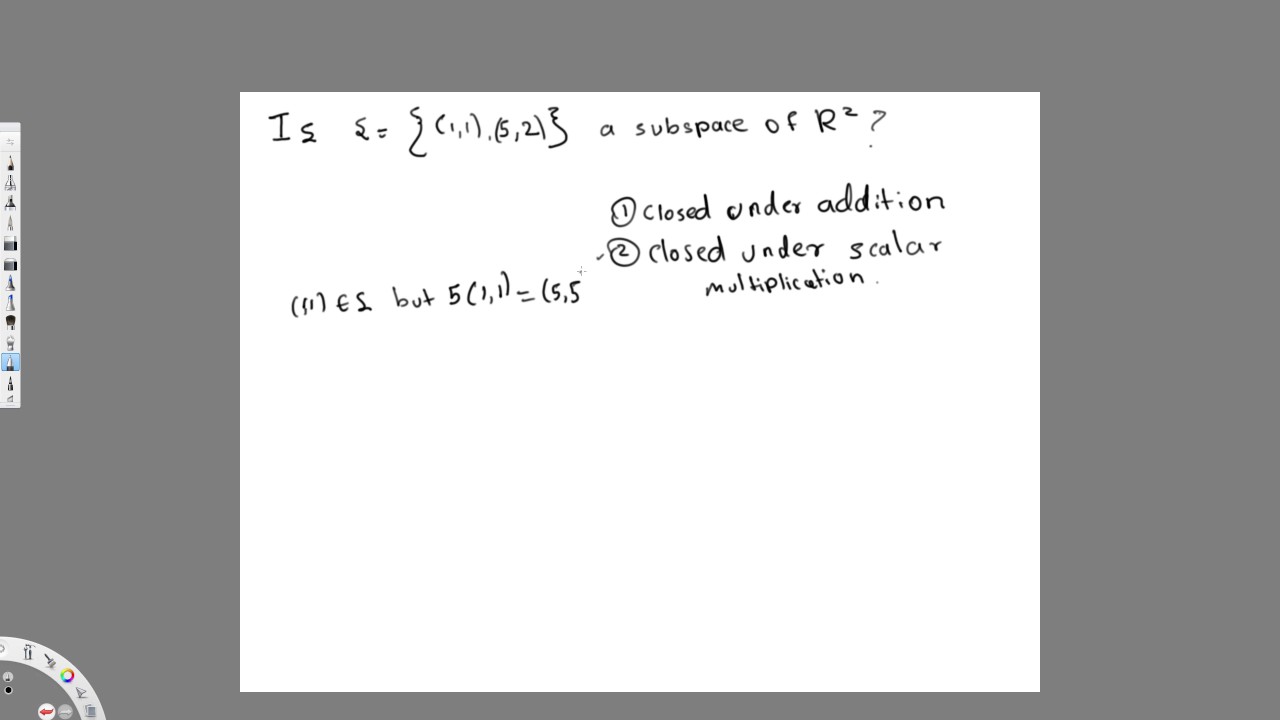 Is S = {(1,1), (5,2)} a subspace of R² ?
① closed under addition
② closed under scalar
multiplication.
(1,1) ∈ S but 5(1,1) = (5,5